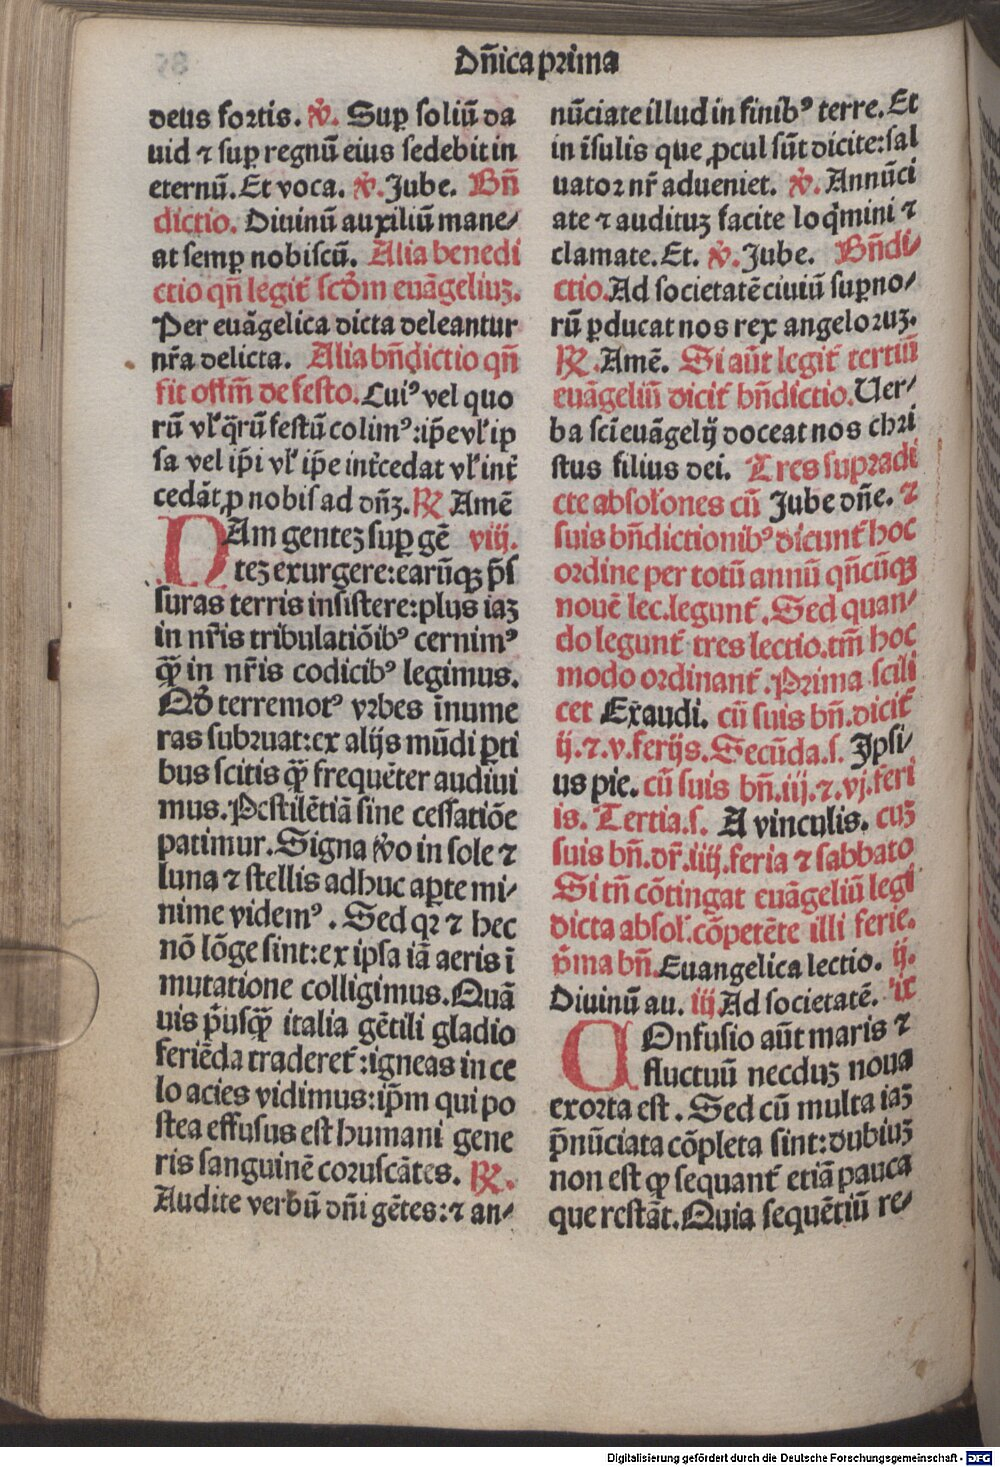 Dñica prima
deus fortis. ℣. Suꝑ soliū da
uid ⁊ suꝑ regnū eius sedebit in
eternū. Et voca. ℣. Jube. Bñ
dictio. Diuinū auxiliū mane⸗
at semꝑ nobiscū. Alia benedi
ctio qñ legit᷑ scd̓m euāgeliuꝫ.
Per euāgelica dicta deleantur
nr̄a delicta. Alia bñdictio qñ
fit offm̄ de festo. Cuiꝰ vel quo
rū vl̓ q̄rū festū colimꝰ: ip̄e vl̓ ip
sa vel ip̄i vl̓ ip̄e int̓cedat vl̓ int̓
cedāt ꝓ nobis ad dñꝫ. ℟ Amē
NAm genteꝫ suꝑ gē viij.
teꝫ exurgere: earūqꝫ p̄s
suras terris insistere: plus iaꝫ
in nr̄is tribulatiōibꝰ cernimꝰ
ꝙ̄ in nr̄is codicibꝰ legimus.
Qd̓ terremotꝰ vrbes īnume
ras subruat: ex alijs mūdi ꝑti
bus scitis ꝙ̄ frequēter audiui
mus. Pestilētiā sine cessatiōe
patimur. Signa v̓o in sole ⁊
luna ⁊ stellis adhuc aꝑte mi⸗
nime videmꝰ. Sed qꝛ ⁊ hec
nō lōge sint: ex ipsa iā aeris ī
mutatione colligimus. Quā
uis p̄usꝙ̄ italia gētili gladio
feriēda traderet᷑: igneas in ce
lo acies vidimus: ip̄m qui po
stea effusus est humani gene
ris sanguinē coruscātes. ℟.
Audite verbū dñi gētes: ⁊ an⸗
nūciate illud in finibꝰ terre. Et
in īsulis que ꝓcul sūt dicite: sal
uator nr̄ adueniet. ℣. Annūci
ate ⁊ audituꝫ facite loq̓mini ⁊
clamate. Et. ℣. Jube. Bñdi⸗
ctio. Ad societatē ciuiū suꝑno⸗
rū ꝑducat nos rex angeloruꝫ.
℟. Amē. Si aūt legit᷑ tertiū
euāgeliū dicit᷑ bñdictio. Uer⸗
ba sc̄i euāgelij doceat nos chri
stus filius dei. Tres supradi
cte absolōnes cū Jube dñe. ⁊
suis bñdictionibꝰ dicunt᷑ hoc
ordine per totū annū qñcūqꝫ
nouē lec. legunt᷑. Sed quan⸗
do legunt᷑ tres lectio. tm̄ hoc
modo ordinant᷑. Prima scili
cet Exaudi. cū suis bñ. dicit᷑
ij. ⁊. v. ferijs. Secūda. s. Ipsi⸗
us pie. cū suis bñ. iij. ⁊. vj. feri
is. Tertia. s. A vinculis. cuꝫ
suis bñ. dr̄. iiij. feria ⁊ sabbato
Si tñ cōtingat euāgeliū legi
dicta absol̓. cōpetēte illi ferie.
p̄ma bñ. Euangelica lectio. ij.
Diuinū au. iij Ad societatē. ix
COnfusio aūt maris ⁊
fluctuū necduꝫ noua
exorta est. Sed cū multa iaꝫ
p̄nūciata cōpleta sint: dubiuꝫ
non est ꝙ sequant᷑ etiā pauca
que restāt. Quia sequētiū re⸗
Digitalisierung gefördert durch die Deutsche Forschungsgemeinschaft - DFG